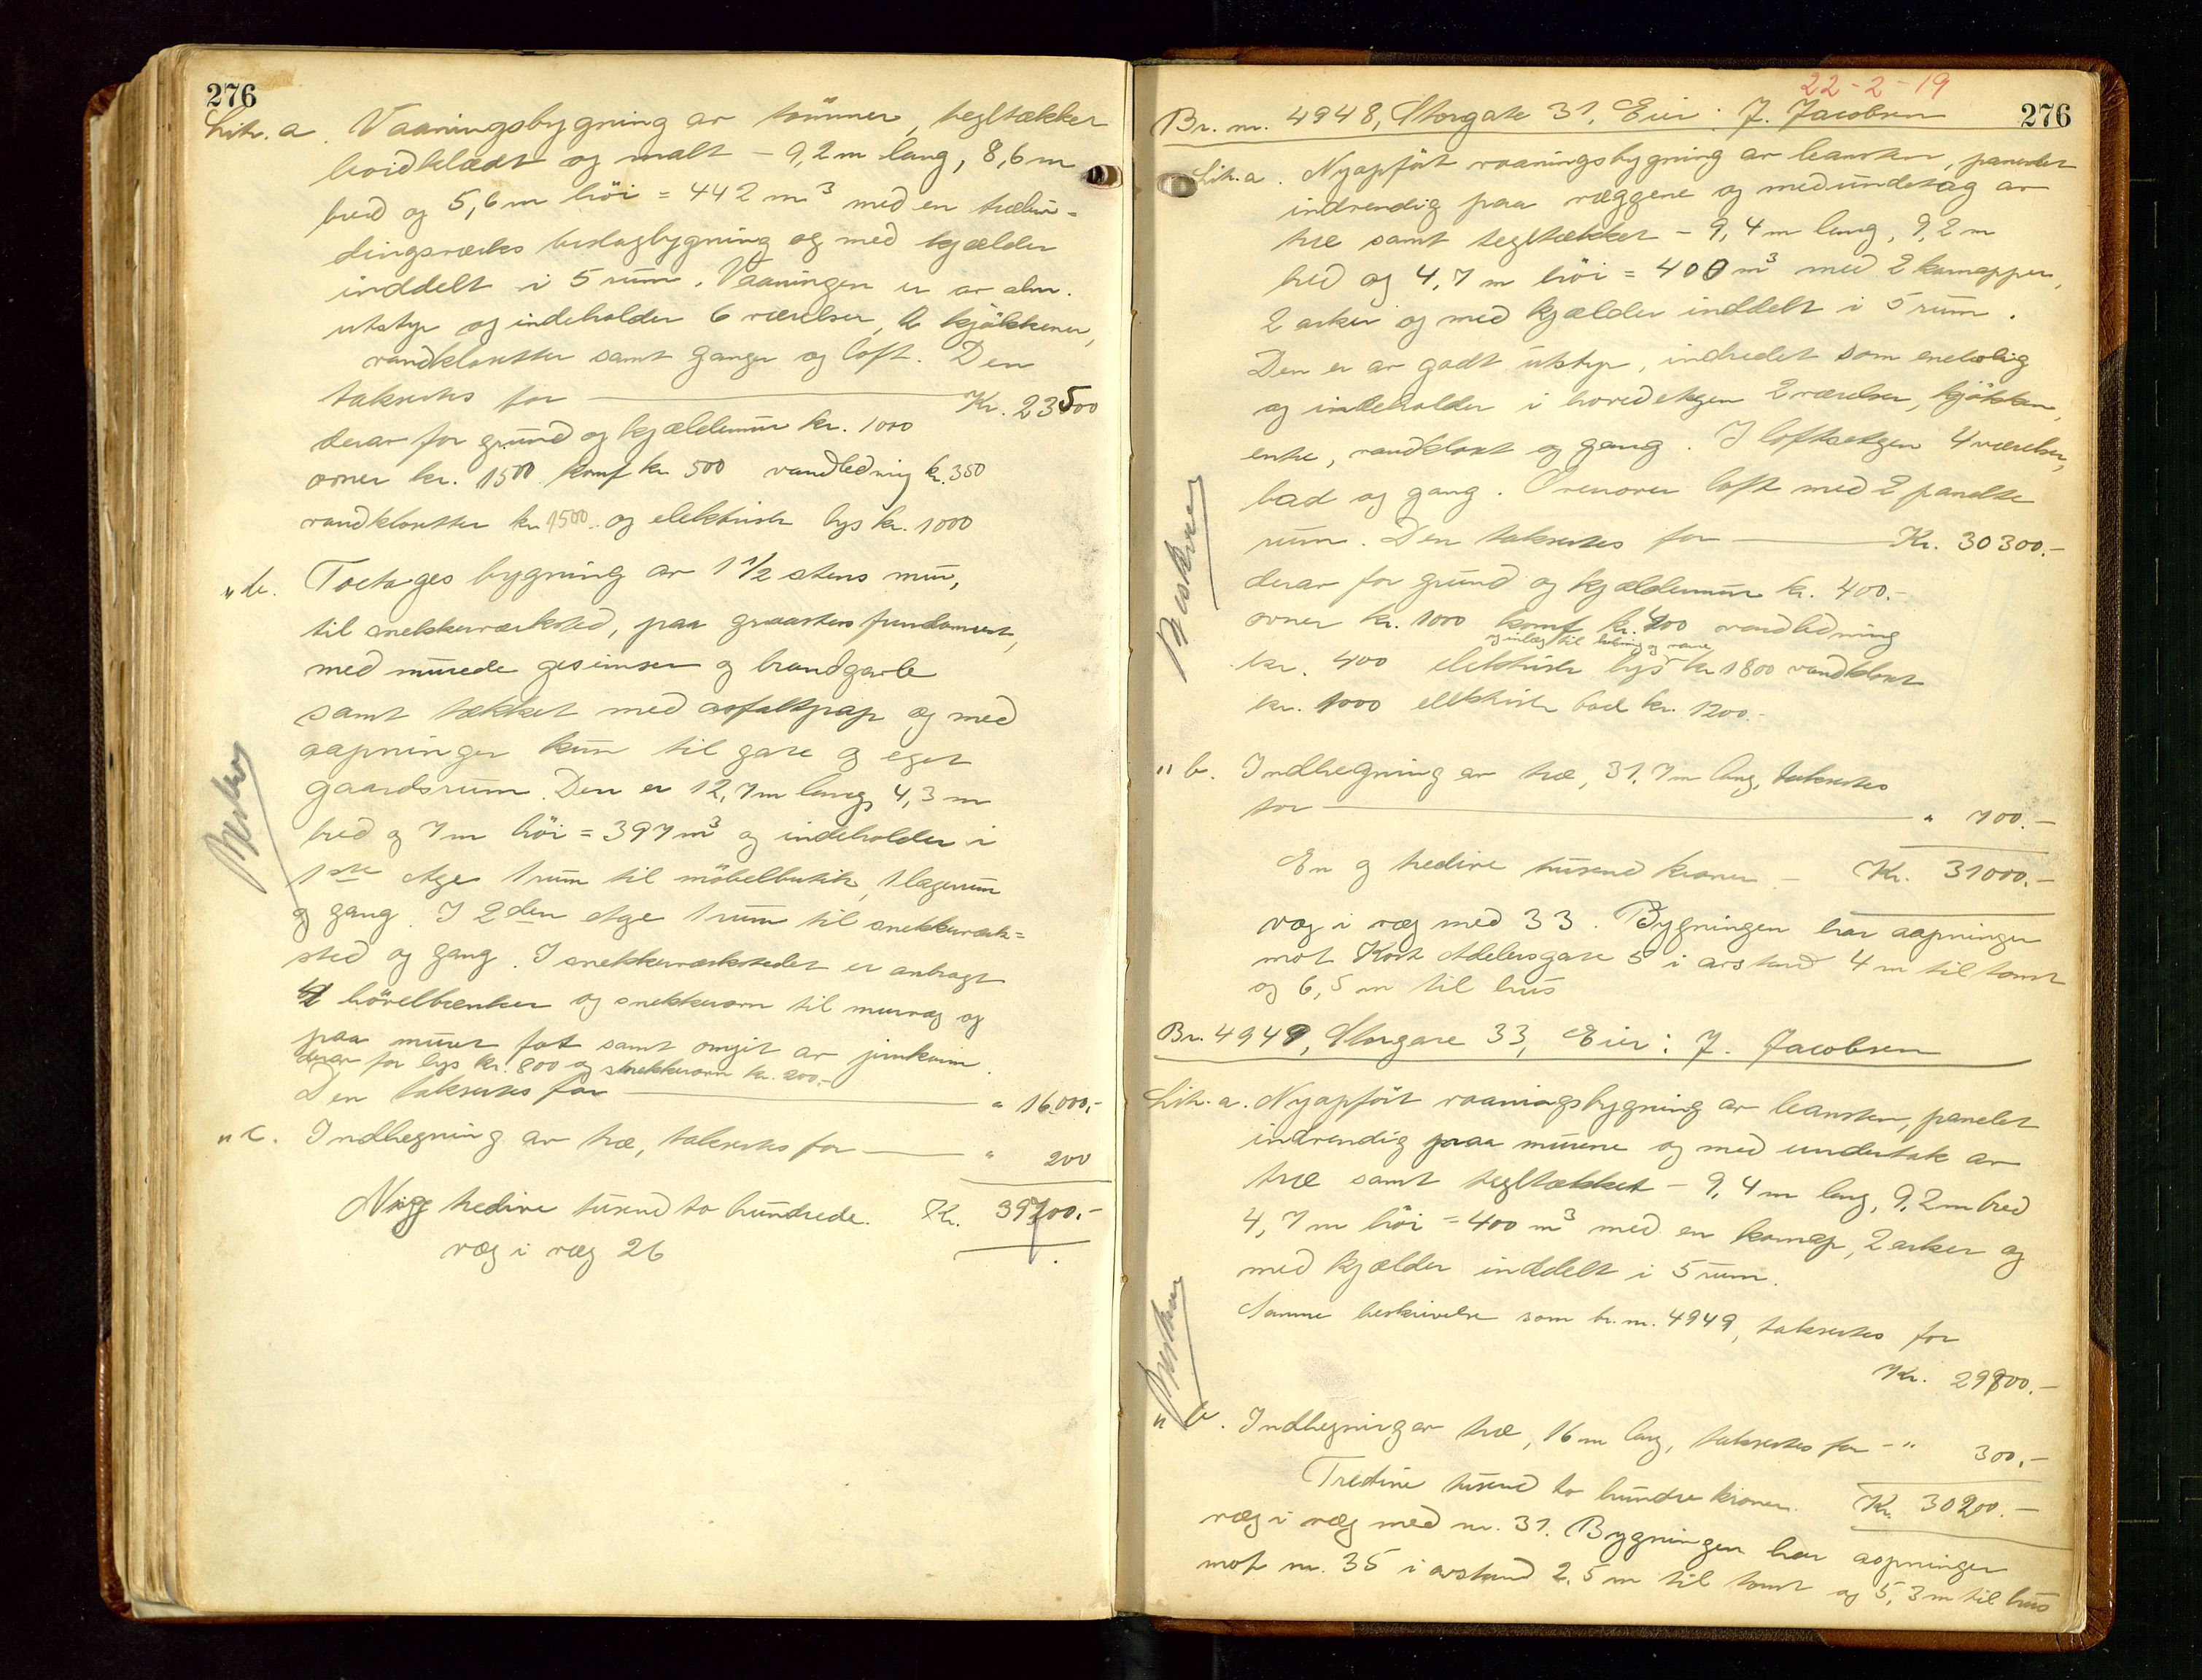 276
Lit. a. Vaaningsbygning av tømmer, tegltækket
bordklædt og malt – 9,2 m lang, 8,6 m
bred og 5,6 m høi = 442 m³ med en træbin-
dingsværks beslagbygning og med kjælder
inddelt i 5 rum. Vaaningen er av alm.
utstyr og indeholder 6 værelser, 2 kjøkkener,
vandklosetter samt ganger og loft. Den
takseres for Kr. 23500
derav for grund og kjældermur kr. 1000
ovner kr. 1500 komf kr 500 vandledning kr. 350
vandklosetter kr. 1500. og elektrisk lys kr. 1000
" b. Toetages bygning av 1 1/2 stens mur,
til snekkerverksted, paa graastens fundament,
med murede gesimser og brandgavle
samt tækket med asfaltpap og med
aapninger kun til gate og eget
gaardsrum. Den er 12,7 m lang, 4,3 m
bred og 7 m høi = 397 m³ og indeholder i
1ste etage 1 rum til møbelbutik, 1 lagerrum
og gang. I 2den etge 1 rum til snekkerværk=
sted og gang. I snekkerværkstedet er anbragt
4 høvelbænker og snekkerovn til murvæg og
paa muret fot samt omgit av jernkarm.
derav for lys kr. 800 og snekkerovn kr. 200.-
Den takseres for " 16.000,-
" c. Indhegning av træ, takseres for " 200
Nitti tredive tusend to hundrede. Kr. 39700.-
væg i væg 26
Beskrev
22-2-19
276
Br. nr. 4948, Storgate 31, Eier: J. Jacobsen
Lit. a. Nyopført vaaningsbygning av leansten, panelet
indvendig paa væggene og med undetag av
træ samt tegltækket – 9,4 m lang, 9,2 m
bred og 4,7 m høi = 400 m³ med 2 karnapper,
2 arker og med kjælder inddelt i 5 rum.
Den er av godt utstyr, indredet som enebolig
og indeholder i hovedetagen 2 værelser, kjøkken,
entre, vandklost og gang. I loftsetagen 4 værelser,
bad og gang. Ovenover loft med 2 panelte
rum. Den takseres for Kr. 30300.-
derav for grund og kjældermur kr. 400.-
ovner kr. 1000 komf kr. 400 vandledning
og indlæg til kokning og varme
kr. 400 elektrisk lys kr 1800 vandklost
kr. 1000 elektrisk bad kr. 1200.-
" b. Indhegning av træ, 31,7 m lang, takseres
for " 700.-
En og tredive tusend kroner – Kr. 31000.-
væg i væg med 33. Bygningen har aapninger
mot Kort Adelersgate 5 i avstand 4 m til tomt
og 6,5 m til hus
Br. 4949, Storgate 33, Eier: J. Jacobsen
Lit. a. Nyopført vaaningsbygning av leansten, panelet
indvendig paa murene og med undertak av
træ samt tegltækket – 9,4 m lang, 9,2 m bred
4,7 m høi = 400 m³ med en karnap, 2 arker og
med kjælder inddelt i 5 rum.
Samme beskrivelse som br. nr. 4949, takseres for
Kr. 29900.-
" b. Indhegning av træ, 16 m lang, takseres for – " 300.-
Tredive tusend to hundre kroner. Kr. 30200.-
væg i væg med nr. 31. Bygningen har aapninger
mot nr. 35 i avstand 2,5 m til tomt og 5,3 m til hus
Beskrev
Beskrev